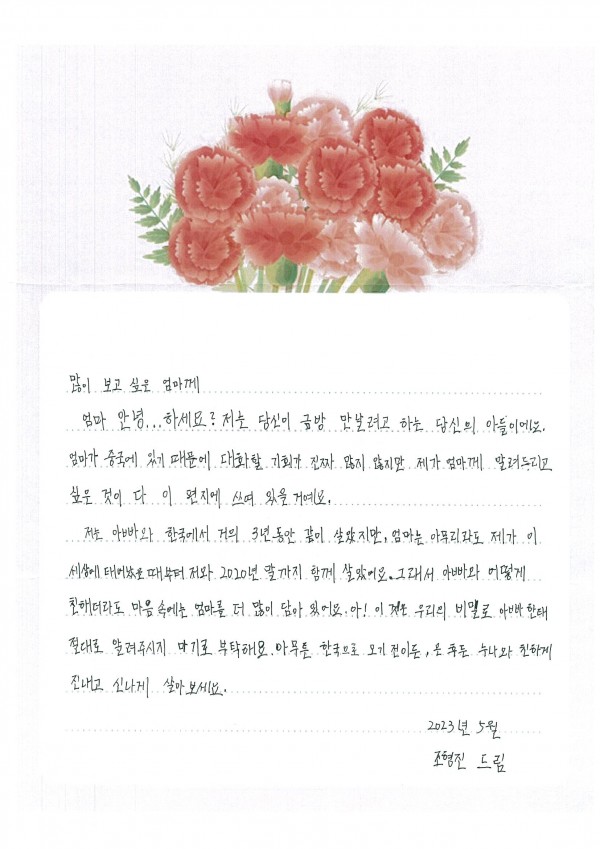 많이 보고 싶은 엄마께
엄마 안녕...하세요? 저는 당신이 금방 만날려고 하는 당신의 아들이에요.
엄마가 중국에 있기 때문에 대화할 기회가 진짜 많지 않지만 제가 엄마께 알려드리고
싶은 것이 다 이 편지에 쓰여 있을 거예요.
저는 아빠와 한국에서 거의 3년동안 같이 살았지만, 엄마는 아무리라도 제가 이
세상에 태어났을 때부터 저와 2020년 말까지 함께 살았어요. 그래서 아빠와 어떻게
친해더라도 마음 속에는 엄마를 더 많이 담아 있어요. 아! 이것은 우리의 비밀로 아빠한태
절대로 알려주시지 마기로 부탁해요. 아무튼 한국으로 오기 전이든, 온 후든 누나와 친하게
지내고 신나게 살아보세요.
2023년 5월
조형진 드림